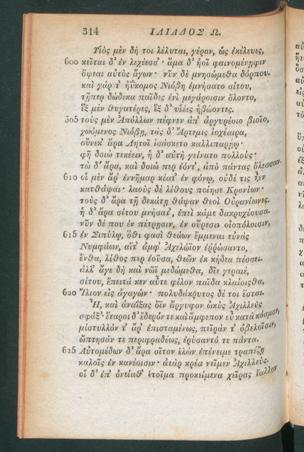 314 ΙΛΙΑΔΟΣ Ω.
Υἱὸς μὲν δή τοι λέλυται, γέρον, ὡς ἐκέλευες,
600 κεῖται δ' ἐν λεχέεσσ'· ἅμα δ' ἠοῖ φαινομένηφιν
ὄψεαι αὐτὸς ἄγων· νῦν δὲ μνησώμεθα δόρπου.
καὶ γάρ τ' ἠΰκομος Νιόβη ἐμνήσατο σίτου,
τῇπερ δώδεκα παῖδες ἐνὶ μεγάροισιν ὄλοντο,
ἓξ μὲν θυγατέρες, ἓξ δ' υἱέες ἡβώοντες.
605 τοὺς μὲν Ἀπόλλων πέφνεν ἀπ' ἀργυρέοιο βιοῖο,
χωόμενος Νιόβῃ, τὰς δ' Ἄρτεμις ἰοχέαιρα,
οὕνεκ' ἄρα Λητοῖ ἰσάσκετο καλλιπαρῄῳ·
φῆ δοιὼ τεκέειν, ἡ δ' αὐτὴ γείνατο πολλούς·
τὼ δ' ἄρα, καὶ δοιώ περ ἐόντ', ἀπὸ πάντας ὄλεσσαν.
610 οἱ μὲν ἄρ' ἐννῆμαρ κέατ' ἐν φόνῳ, οὐδέ τις ἦεν
κατθάψαι· λαοὺς δὲ λίθους ποίησε Κρονίων·
τοὺς δ' ἄρα τῇ δεκάτῃ θάψαν θεοὶ Οὐρανίωνες.
ἡ δ' ἄρα σίτου μνήσατ', ἐπεὶ κάμε δακρυχέουσα.
νῦν δέ που ἐν πέτρῃσιν, ἐν οὔρεσιν οἰοπόλοισιν,
615 ἐν Σιπύλῳ, ὅθι φασὶ θεάων ἔμμεναι εὐνὰς
Νυμφάων, αἵτ' ἀμφ' Ἀχελώϊον ἐῤῥώσαντο,
ἔνθα, λίθος περ ἐοῦσα, θεῶν ἐκ κήδεα πέσσει.
ἀλλ' ἄγε δὴ καὶ νῶϊ μεδώμεθα, δῖε γεραιέ,
σίτου, ἔπειτά κεν αὖτε φίλον παῖδα κλαίοισθα,
620 Ἴλιον εἰς ἀγαγών· πολυδάκρυτος δέ τοι ἔσται.
Ἦ, καὶ ἀναΐξας ὄϊν ἄργυφον ὠκὺς Ἀχιλλεὺς
σφάξ'· ἕταροι δ' ἔδερόν τε καὶ ἄμφεπον εὖ κατὰ κόσμον,
μίστυλλόν τ' ἄρ' ἐπισταμένως, πεῖράν τ' ὀβελοῖσιν,
ὤπτησάν τε περιφραδέως, ἐρύσαντό τε πάντα.
625 Αὐτομέδων δ' ἄρα σῖτον ἑλὼν ἐπένειμε τραπέζῃ
καλοῖς ἐν κανέοισιν· ἀτὰρ κρέα νεῖμεν Ἀχιλλεύς.
οἱ δ' ἐπ' ὀνείαθ' ἑτοῖμα προκείμενα χεῖρας ἴαλλον.